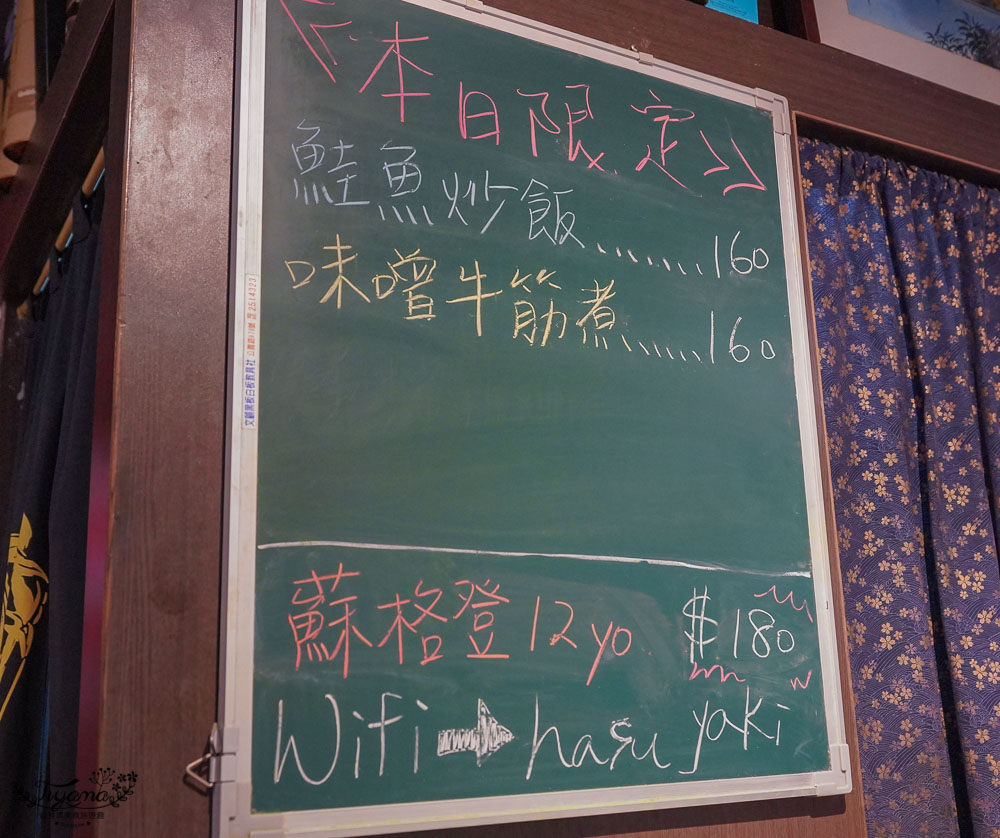 《本日限定》
鮭魚炒飯........160
味噌牛筋煮........160
蘇格登12yo $180
Wifi➡hasu yaki